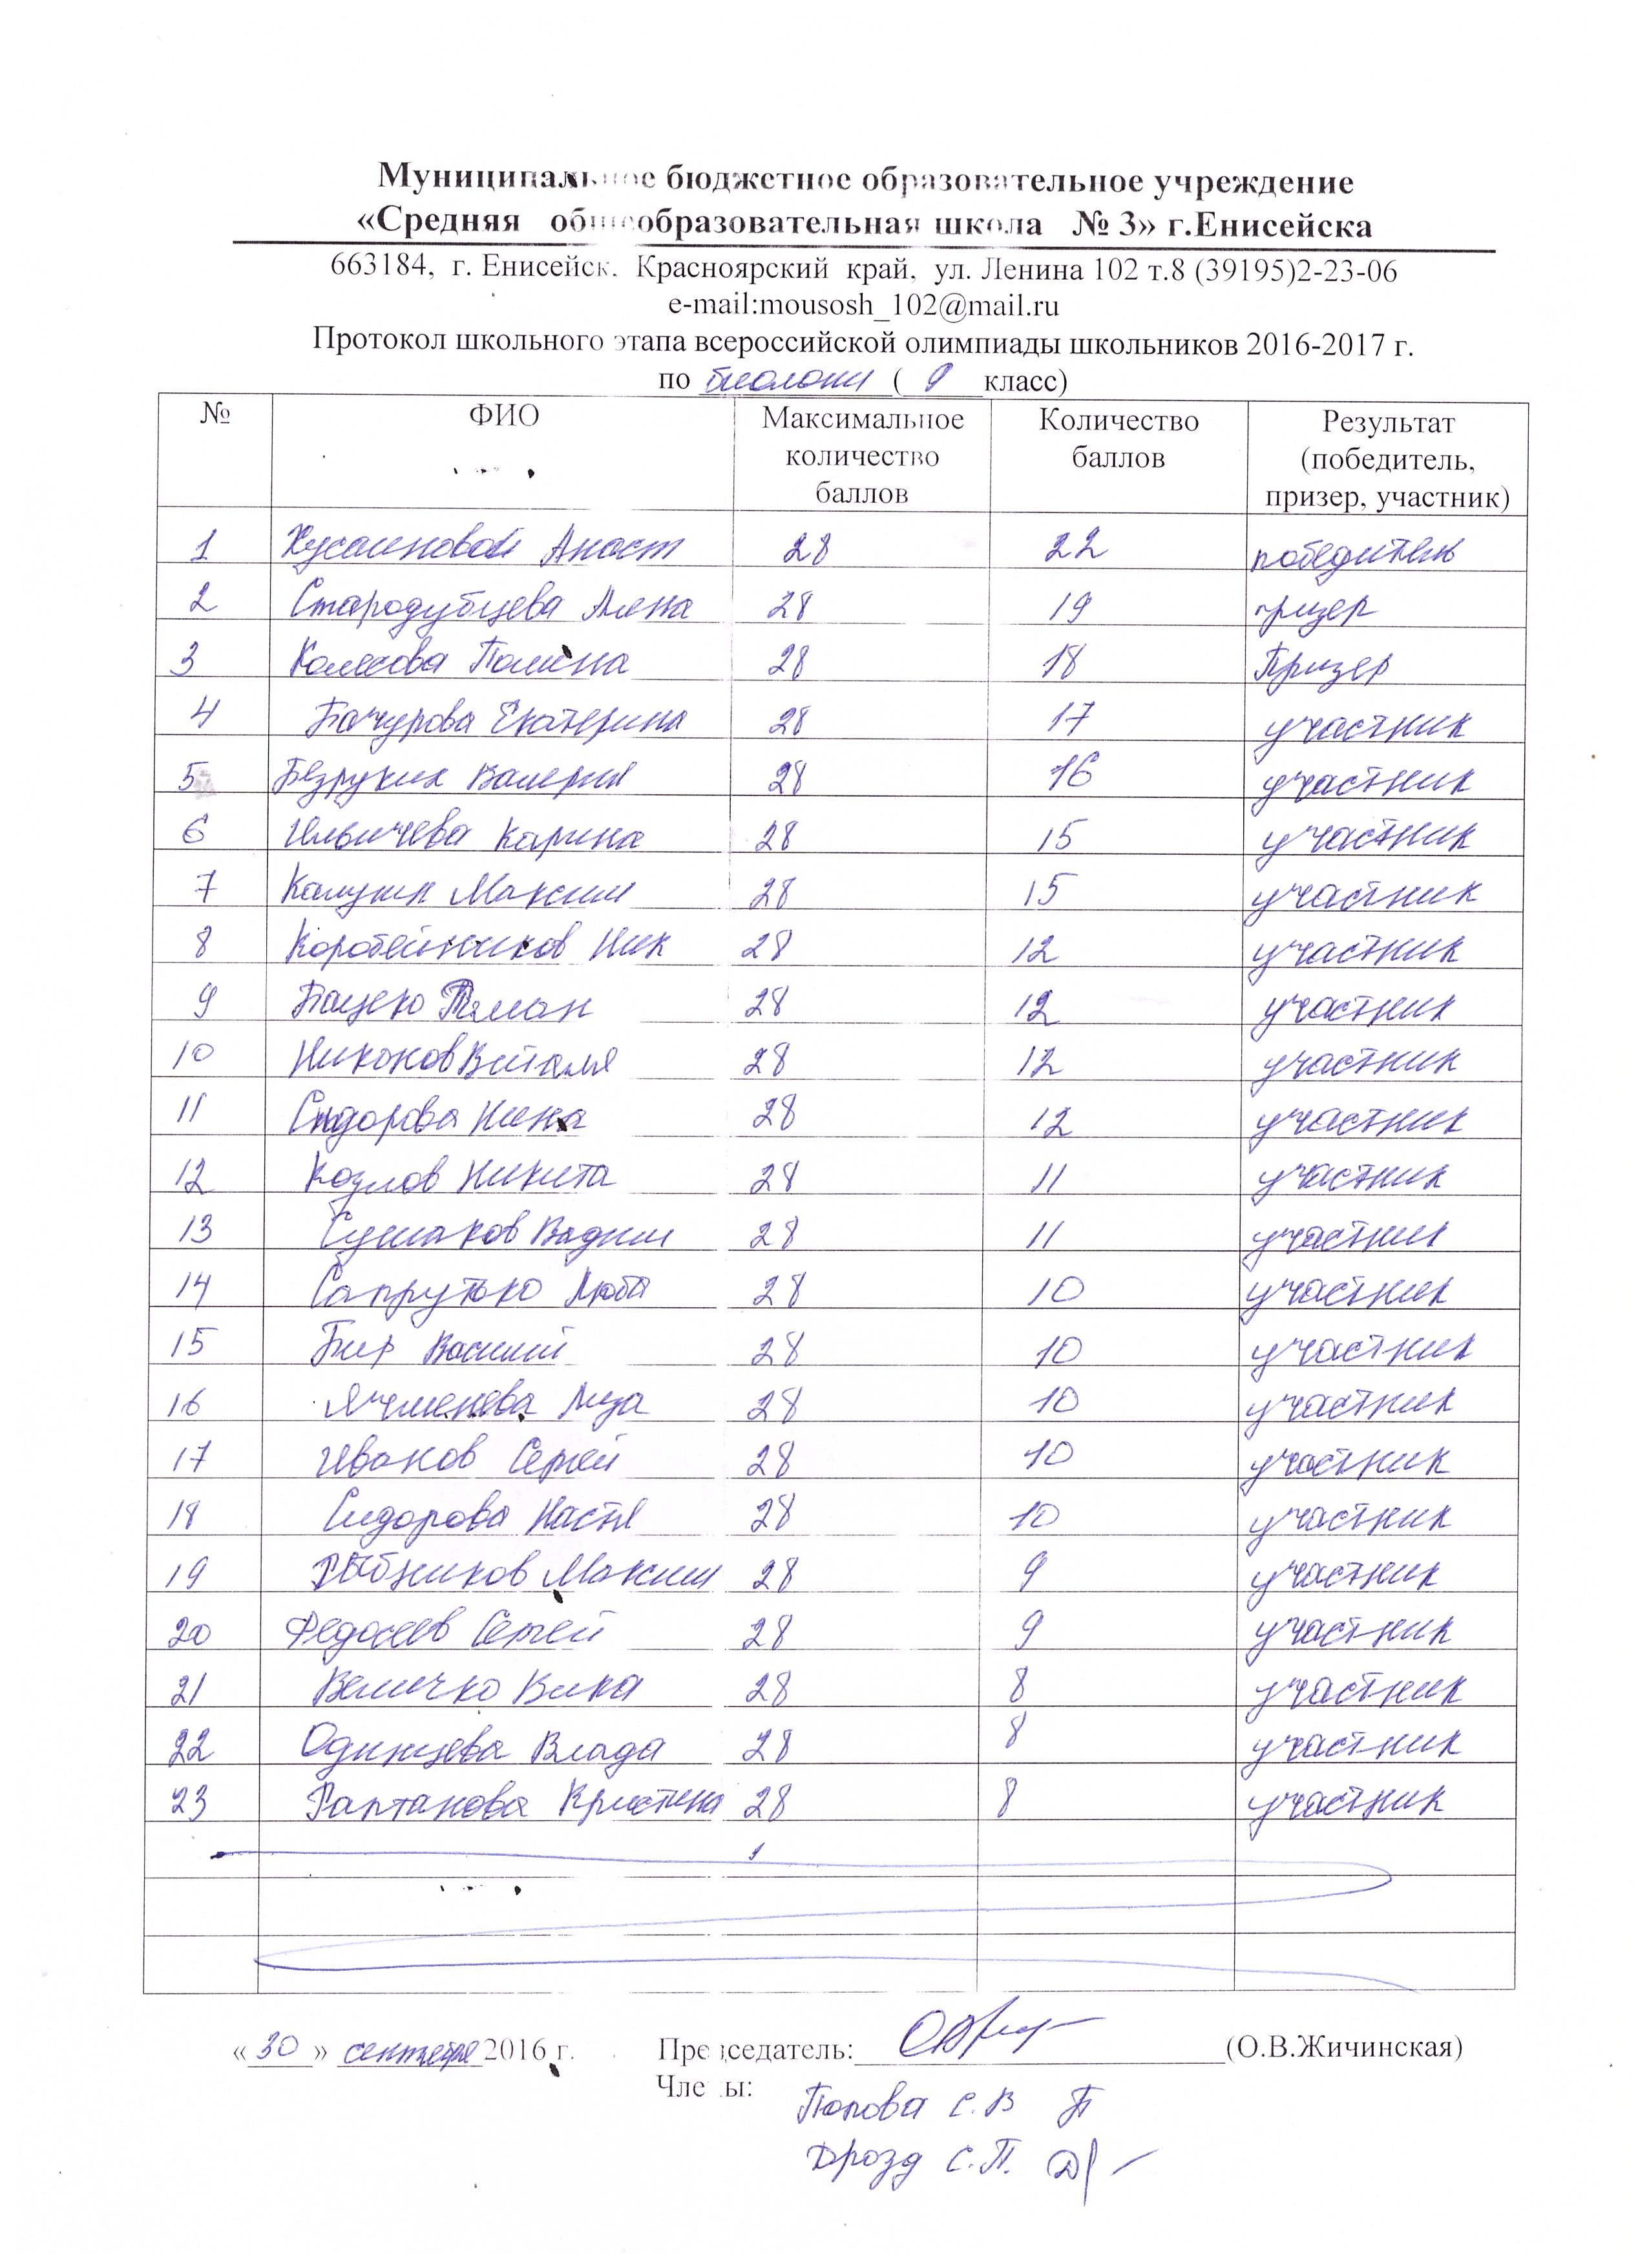 Муниципальное бюджетное образовательное учреждение
«Средняя общеобразовательная школа № 3» г.Енисейска
663184, г. Енисейск, Красноярский край, ул. Ленина 102 т.8 (39195)2-23-06
e-mail:mousosh_102@mail.ru
Протокол школьного этапа всероссийской олимпиады школьников 2016-2017 г.
по биологии ( 9 класс)
№ ФИО Максимальное количество баллов Количество баллов Результат (победитель, призер, участник)
1 Хусаиновой Анаст 28 22 победитель
2 Стародубцева Алена 28 19 призер
3 Колесова Полина 28 18 Призер
4 Бачурова Екатерина 28 17 участник
5 Безруких Валерия 28 16 участник
6 Ильичева Карина 28 15 участник
7 Калугин Максим 28 15 участник
8 Коробейников Ник 28 12 участник
9 Пацеко Роман 28 12 участник
10 Никонов Виталя 28 12 участник
11 Сидорова Нина 28 12 участник
12 Козлов Никита 28 11 участник
13 Сушаков Вадим 28 11 участник
14 Сапрутько Люба 28 10 участник
15 Бир Василий 28 10 участник
16 Ячменева Лиза 28 10 участник
17 Иванов Сергей 28 10 участник
18 Сидорова Настя 28 10 участник
19 Рыбников Максим 28 9 участник
20 Федосеев Сергей 28 9 участник
21 Величко Вика 28 8 участник
22 Одинцева Влада 28 8 участник
23 Раптанова Кристина 28 8 участник
«30» сентября 2016 г. Председатель: (О.В.Жичинская)
Члены:
Попова С.В П
Дрозд С.П.